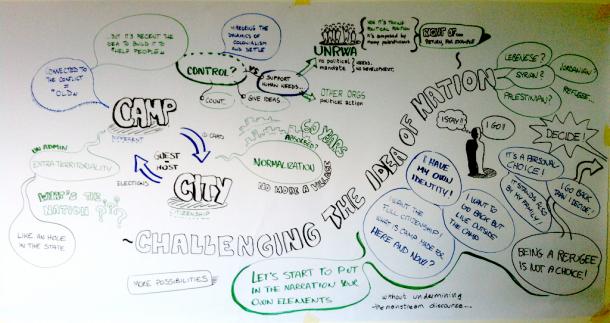 ...BUT IT'S RECENT THE
IDEA TO BUILD IT TO
"HELP PEOPLE"
CONNECTED TO
THE CONFLICT
=
"OLD"
DYNAMICS OF
COLONIALISM
AND SETTLE
CONTROL?
VS
SUPPORT
HUMAN NEEDS...
COUNT.
GIVE IDEAS
UNRWA
no political
mandate
NEEDS.
NO DEVELOPMENT.
NOW IT'S TAKING
POLITICAL POSITION
it's composed by
many palestinians
RIGHT OF...
RETURN, FOR EXAMPLE
OTHER ORGS
political action
CAMP
DIFFERENT
ID CARD
GUEST
HOST
ELECTIONS
CITY
CITIZENSHIP
60 YEARS
NORMALIZATION
NO MORE A VILLAGE
ON ADMIN
EXTRATERRITORIALITY
WHAT'S THE
NATION???
LIKE AN HOLE
IN THE STATE
~CHALLENGING THE IDEA OF NATION
LEBENESE?
SYRIAN?
PALESTINIAN?
JORDANIAN
REFUGEE...
I STAY!!
I GO!!
DECIDE!
IT'S A PERSONAL
CHOICE!
IT STANDS ALSO
BY MY FAMILY!
I GO BACK
THAN I DECIDE!
I HAVE
MY OWN
IDENTITY!
I WANT TO
GO BACK BUT
LIVE OUTSIDE
THE CAMP
I WANT THE
FULL CITIZENSHIP!
WHAT IS CAMP MADE FOR
HERE AND NOW?
BEING A REFUGEE
IS NOT A CHOICE!
MORE POSSIBILITIES
LET'S START TO PUT
IN THE NARRATION YOUR
OWN ELEMENTS
without undermining
the mainstream discourse...